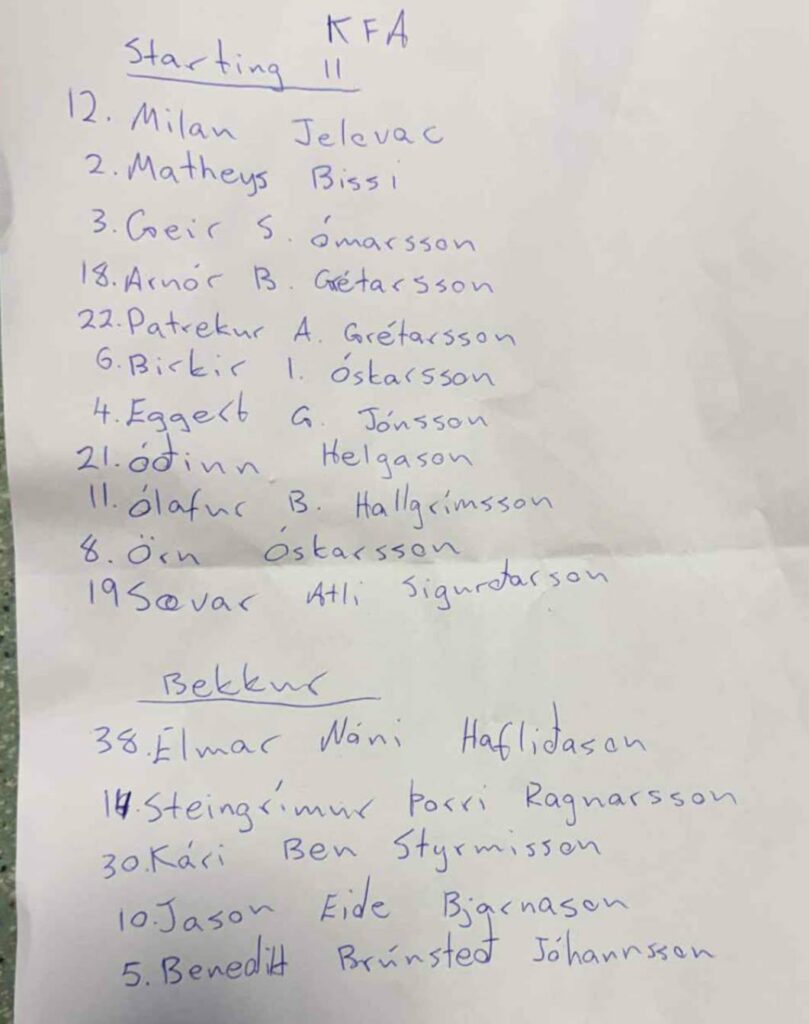 KFA
Starting 11
12. Milan Jelevac
2. Matheys Bissi
3. Geir S. Ómarsson
18. Arnór B. Grétarsson
22. Patrekur A. Grétarsson
6. Birkir I. Óskarsson
4. Eggert G. Jónsson
21. Óðinn Helgason
11. Ólafur B. Hallgrímsson
8. Örn Óskarsson
19 Sævar Atli Sigurðarson
Bekkur
38. Elmar Náni Hafliðason
Steingrímur Þorri Ragnarsson
30. Kári Ben Styrmisson
10. Jason Eide Bjarnason
5. Benedikt Brúnsteð Jóhannsson